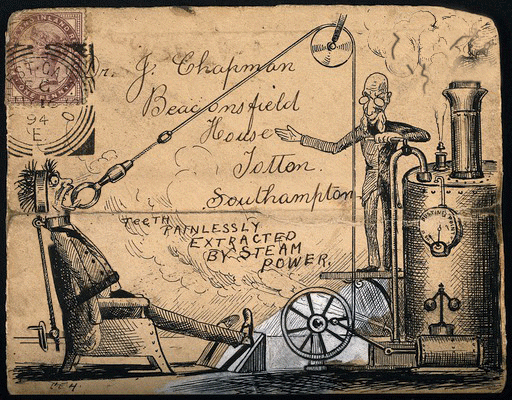 Dr. J. Chapman
Beaconsfield
House
Totton.
Southampton
TEETH
PAINLESSLY
EXTRACTED
BY STEAM
POWER.
94
E